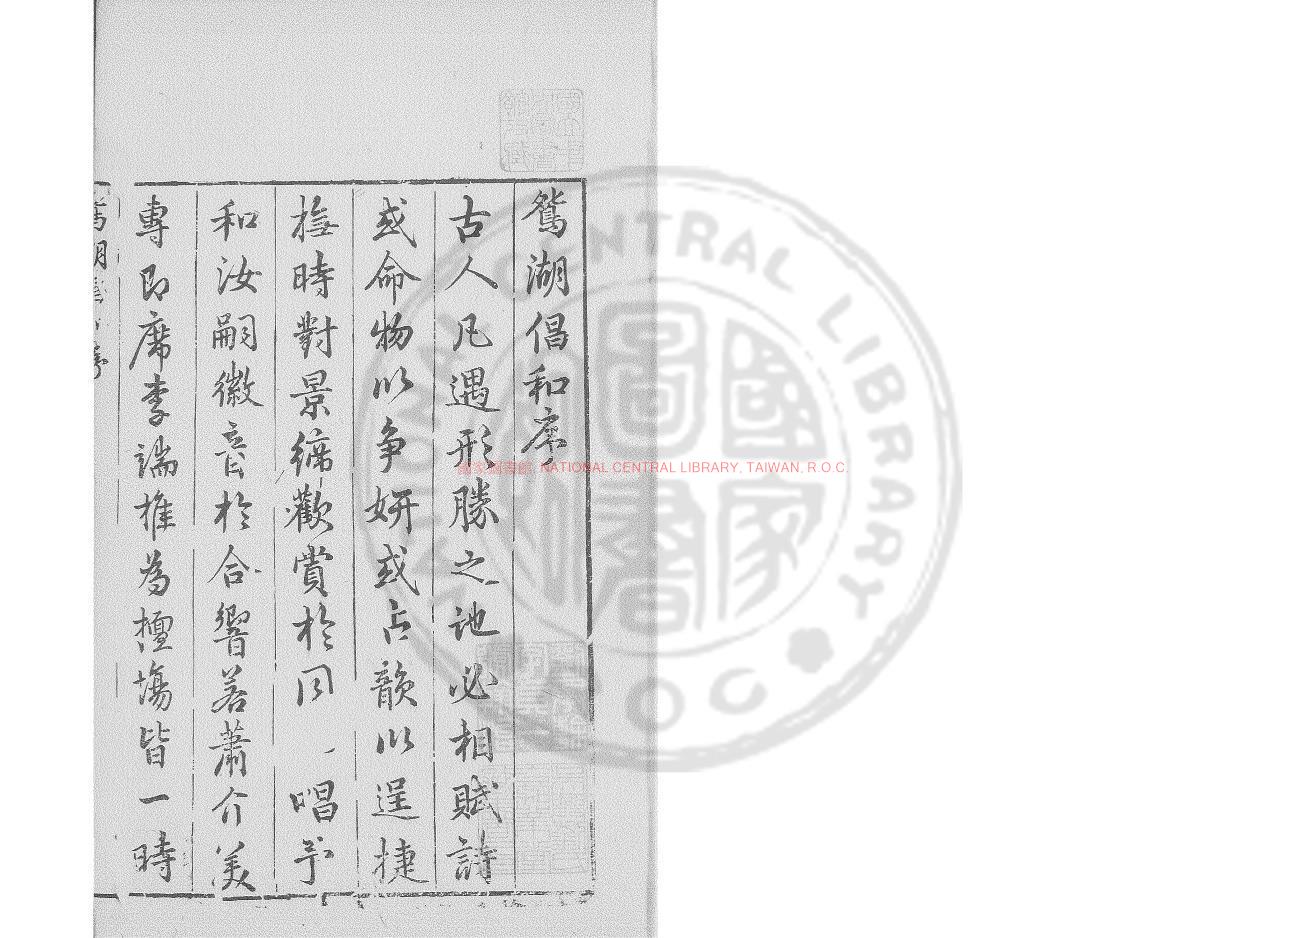 鴛湖倡和序
古人凡遇形勝之地必相賦詩
或命物以爭妍或占韻以逞捷
撫時對景締歡賞於同一唱予
和汝嗣徽音於合響若蕭介美
專即席李端推為擅塲皆一時
國家圖書館, NATIONAL CENTRAL LIBRARY, TAIWAN, R.O.C.
NATIONAL CENTRAL LIBRARY
R.O.C.
國家圖書